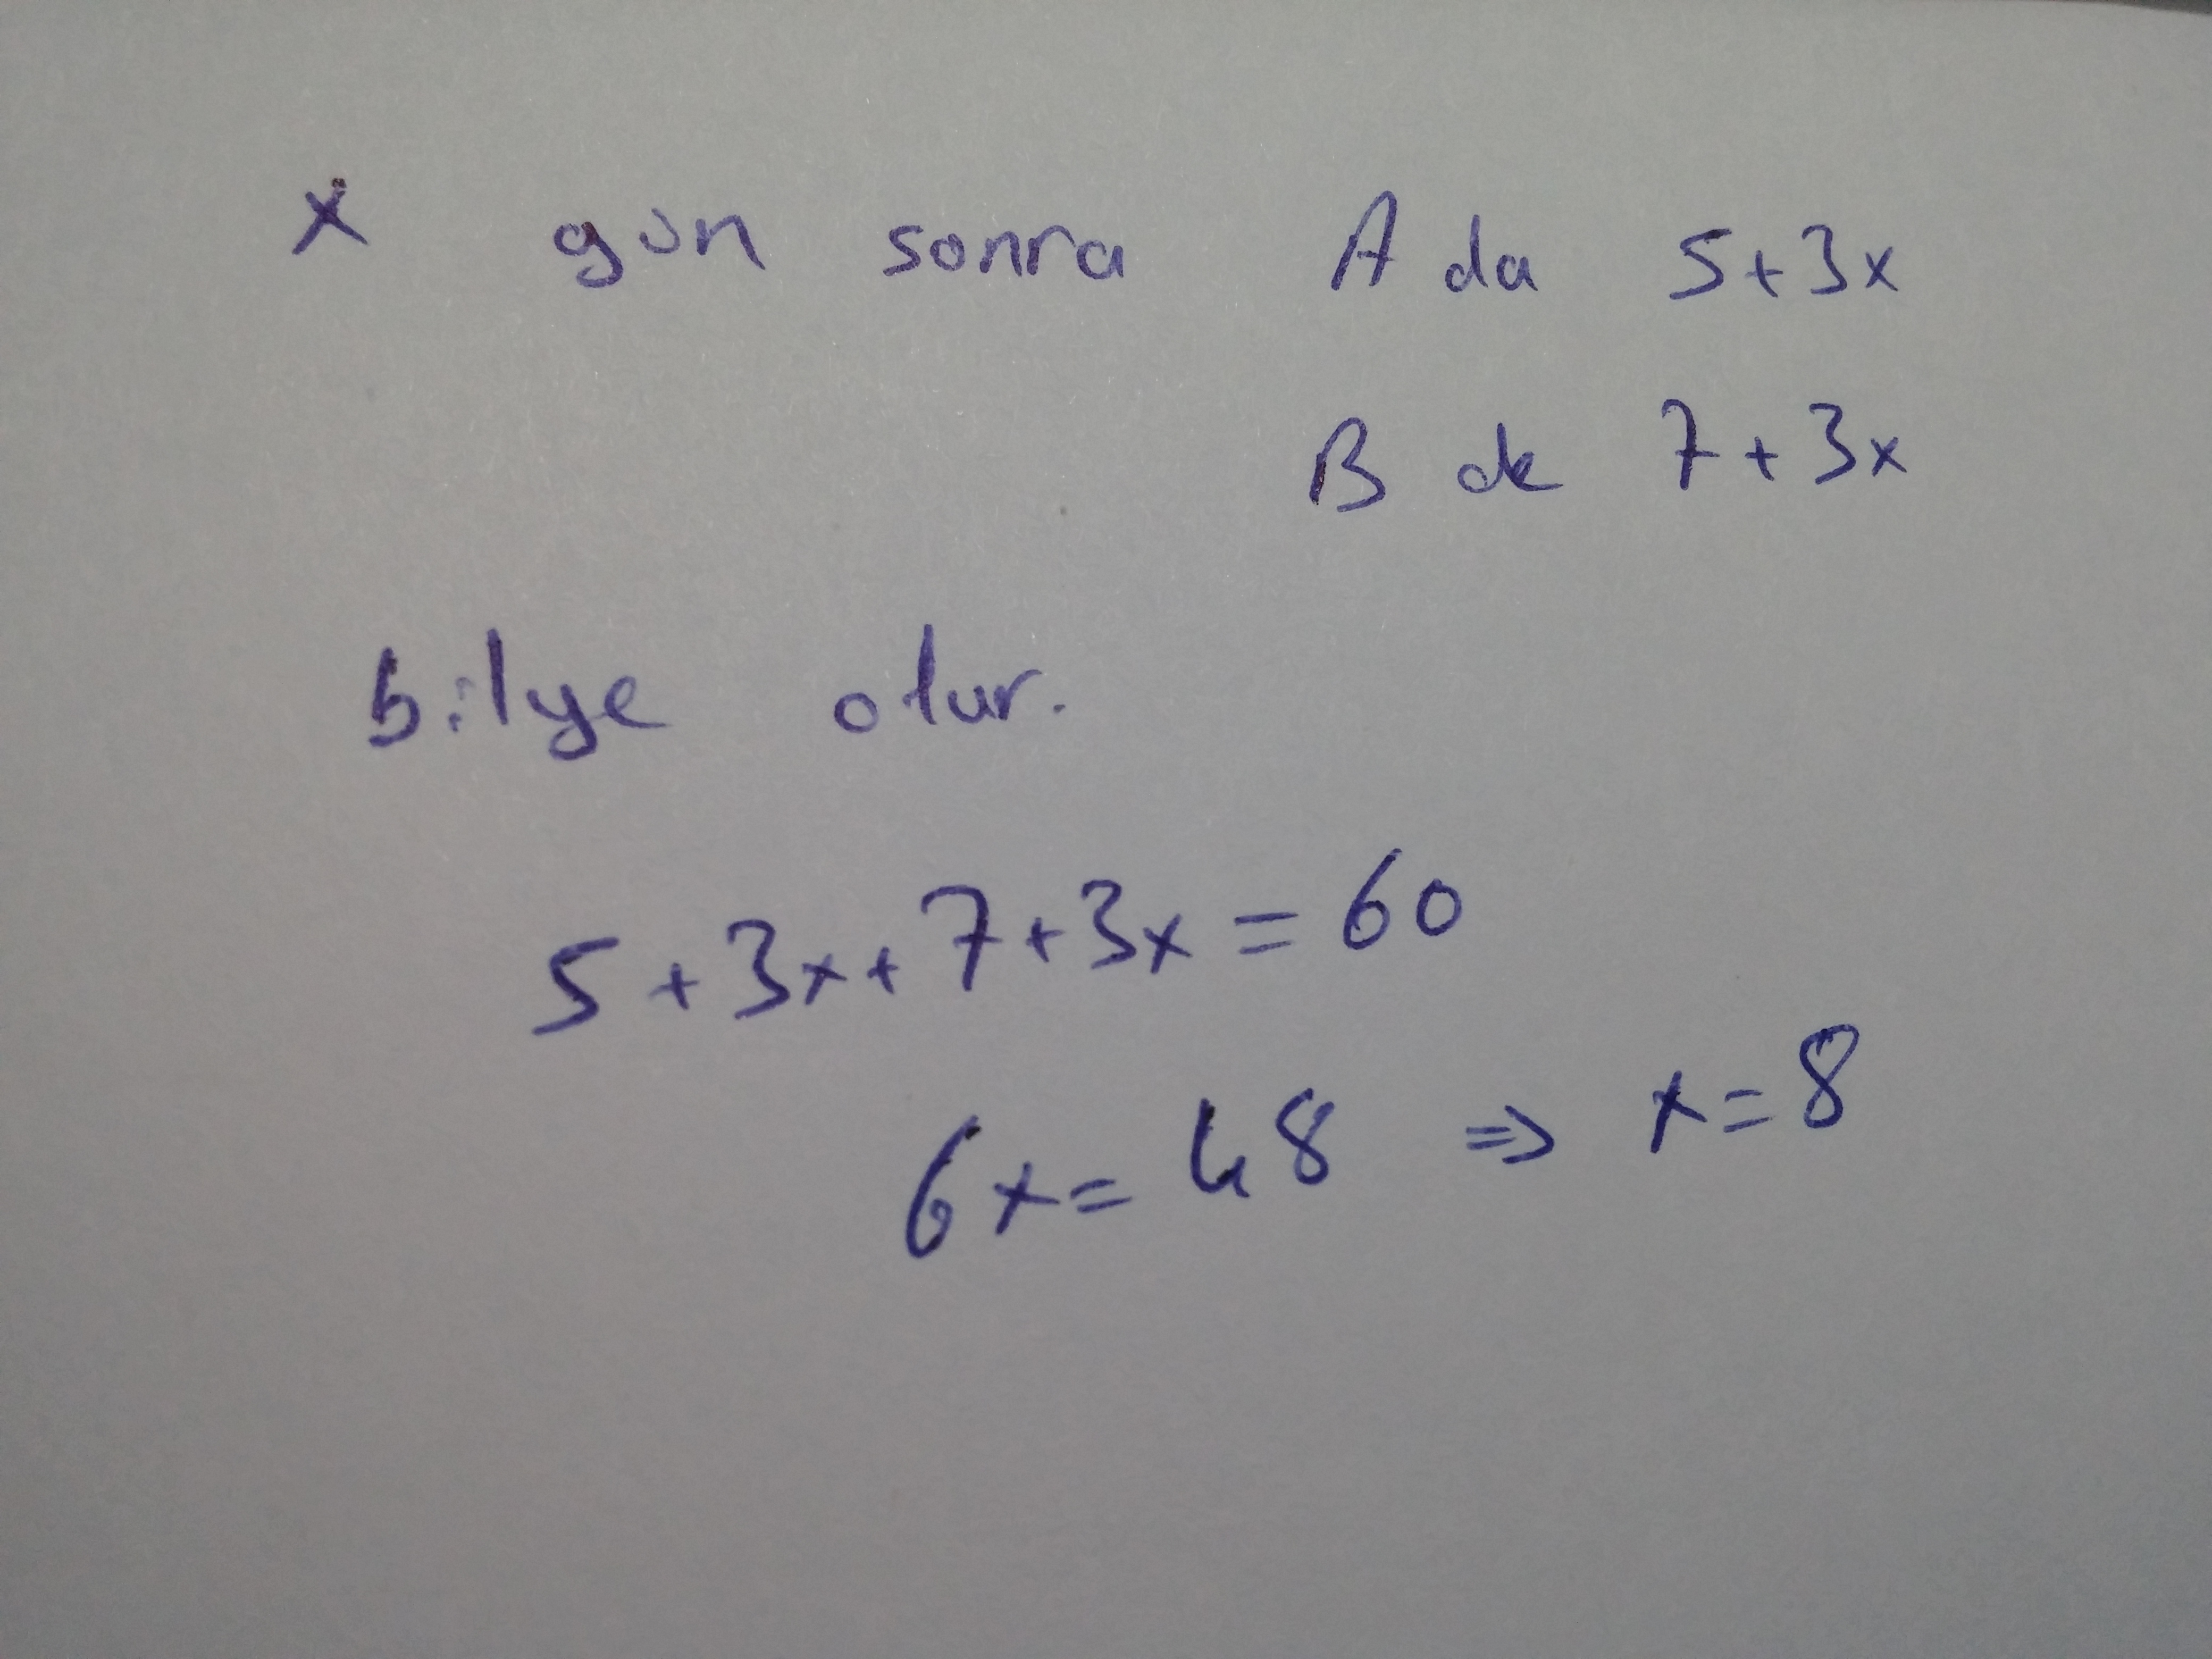 x gün sonra A da 5+3x
B de 7+3x
bilye olur.
5+3x+7+3x=60
6x=48 ⇒ x=8